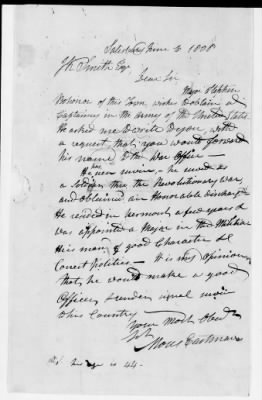 Salisbury June 6 1808
J K Smith Esqr
Dear Sir
Major Stephen
of this Town, wishes to obtain a
Captaincy in the army of the United States
He asked me to write to you, with
a request that you would forward
his name to the War Office —
He served as
a Soldier thro the Revolutionary War,
and obtained an Honorable
He resided in Vermont a few years &
was appointed a Major in the Militia
He is a man of good Character &
Correct Politics — It is my opinion
that he would make a good
Officer, & render
this Country —
Your Most Obed
Moses Eastman
his age is 44 -